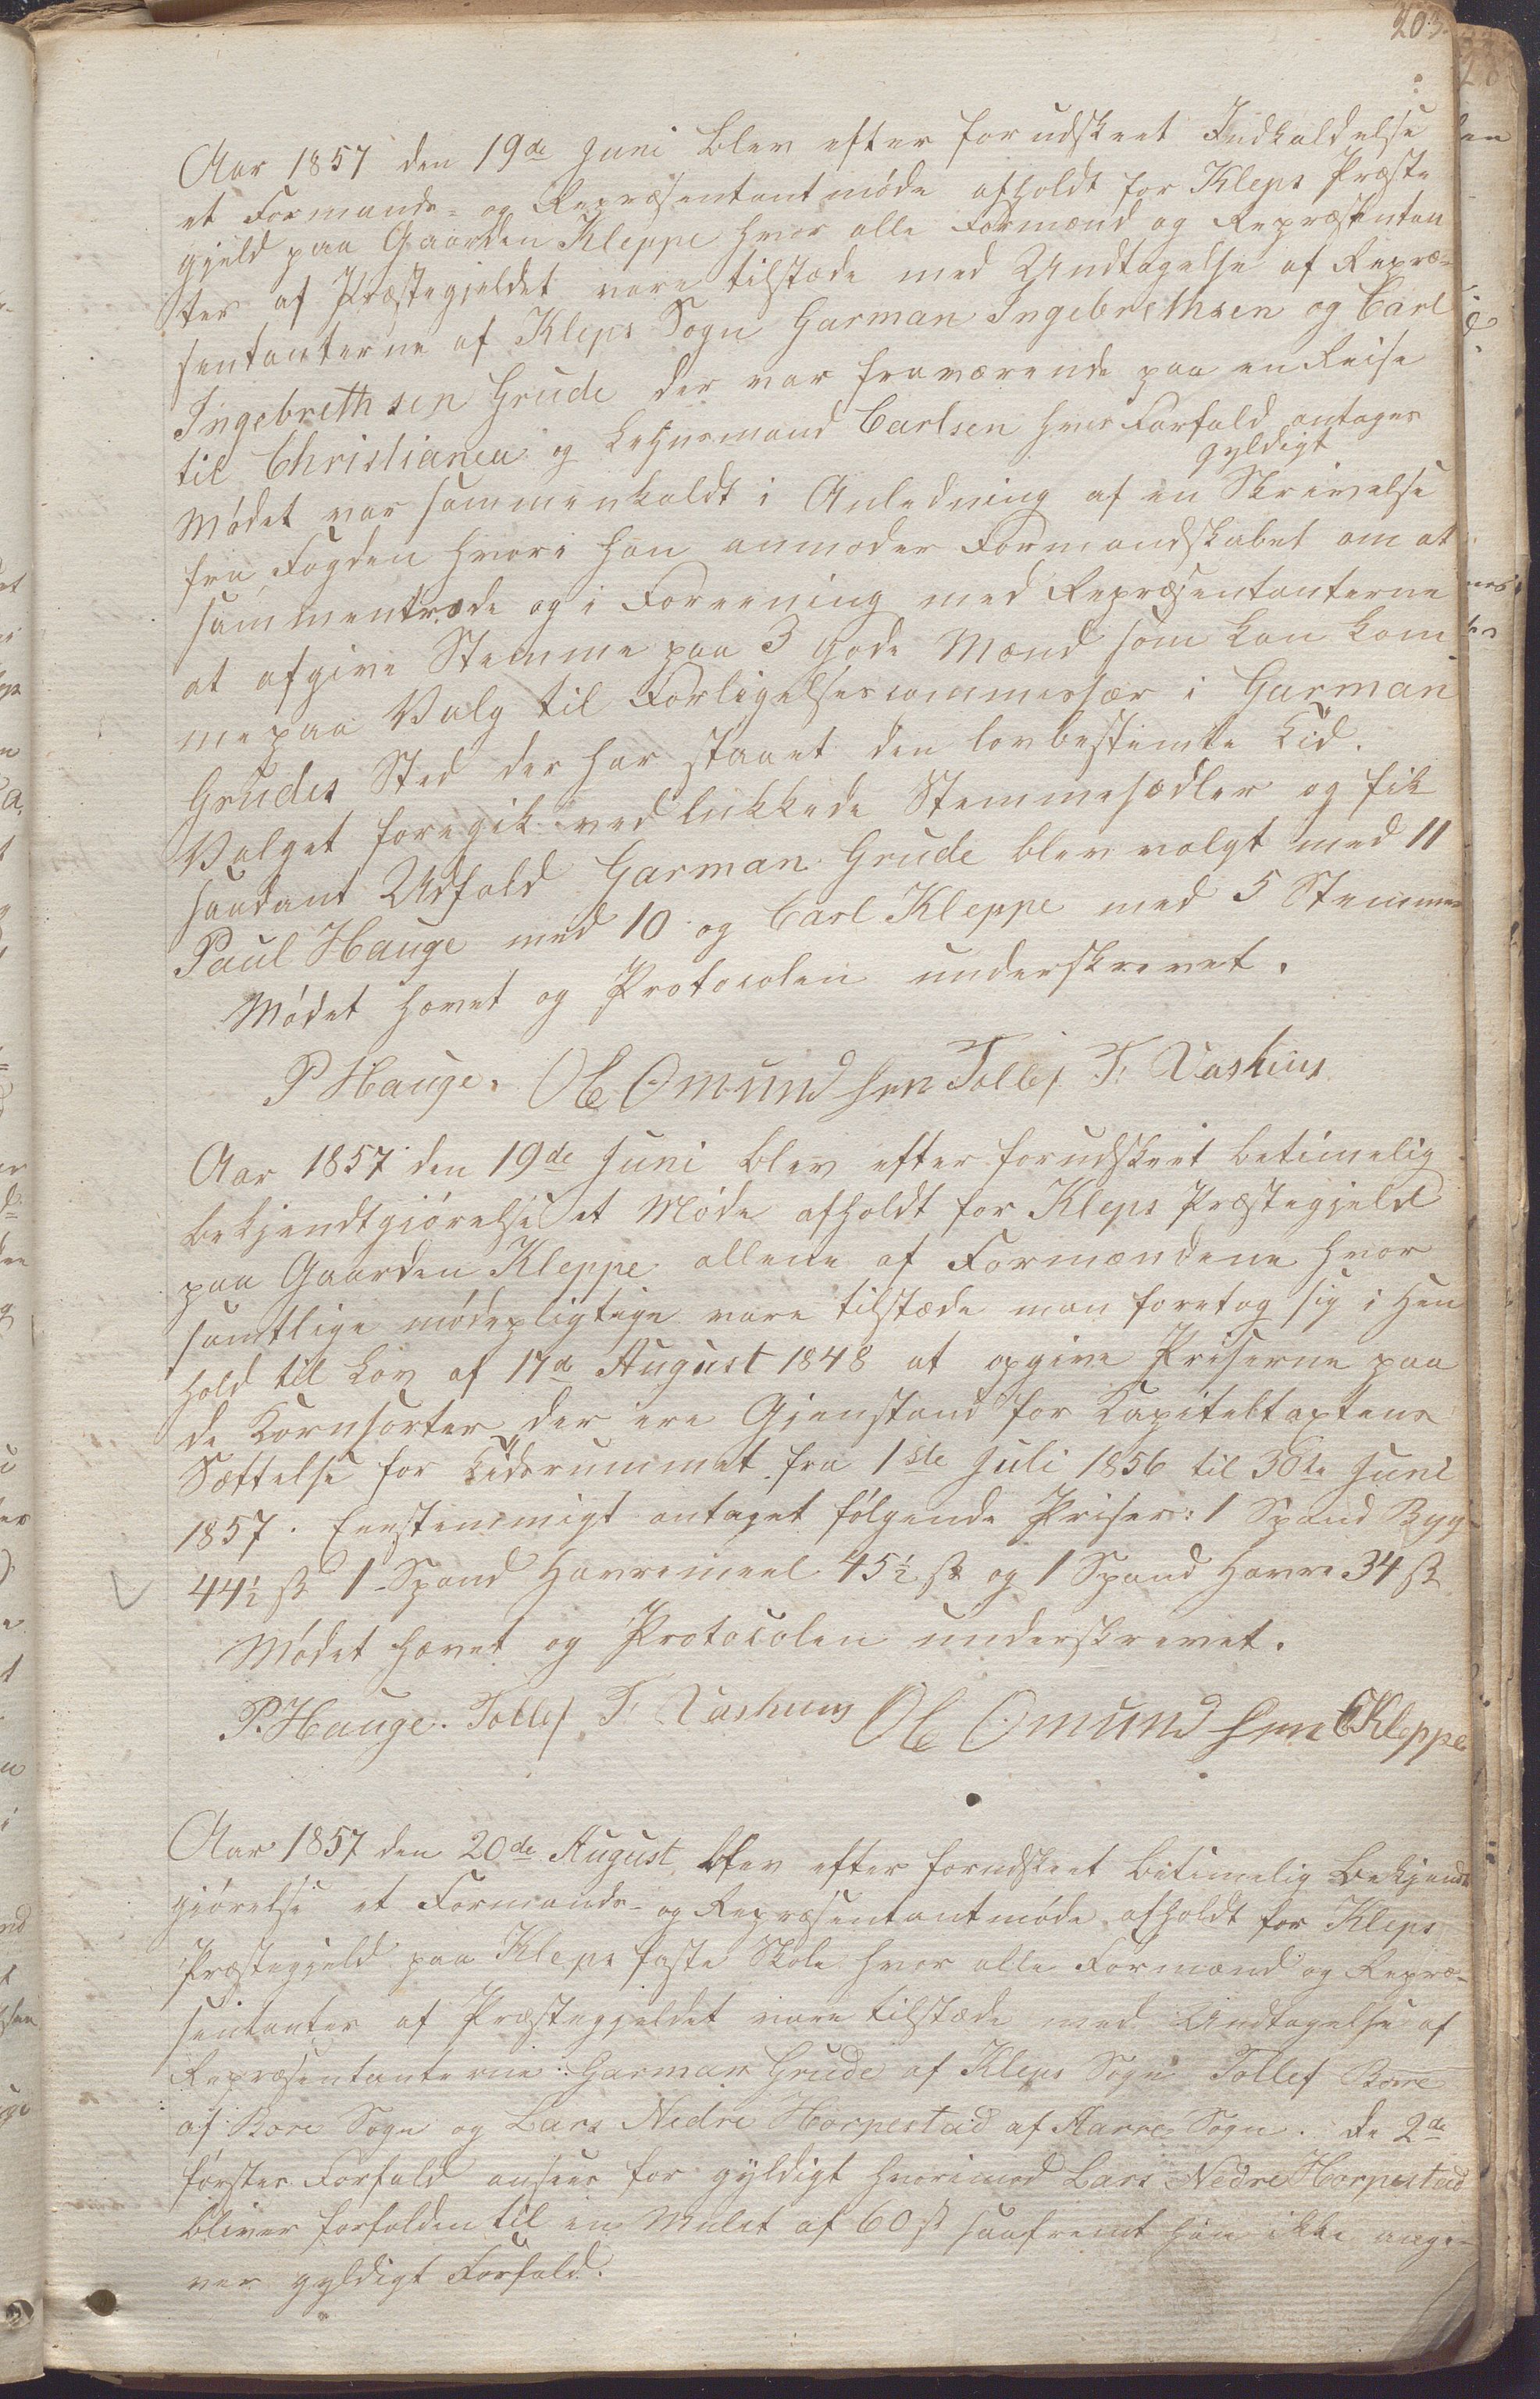 203.
Aar 1857 den 19de Juni blev efter forudskeet Indkaldelse
et Formands- og Repræsentantmøde afholdt for Kleps Præste
gjeld paa Gaarden Kleppe hvor alle Formænd og Repræsentan
ter af Præstegjeldet vare tilstæde med Undtagelse af Repræ-
sentanterne af Kleps Sogn Garman Ingebrethsen og Carl
Ingebrethsen Grude der var fraværende paa en Reise
til Christiania og Lehnsmand Carlsen hvis Forfald antages
gyldigt
Mødet var sammenkaldt i Anledning af en Skrivelse
fra Fogden hvori han anmoder Formandskabet om at
sammentræde og i Foreening med Repræsentanterne
at afgive Stemme paa 3 gode Mænd som kan kom
me paa Valg til Forligelsescommessær i Garman
Grudes Sted der har staaet den lovbestemte Tid.
Valget foregik ved lukkede Stemmesædler og fik
saadant Udfald Garman Grude blev valgt med 11
Paul Hauge med 10 og Carl Kleppe med 5 Stemmer
Mødet hævet og Protocolen underskrevet.
P Hauge. Ole Omundsen Tollef T. Vashuus
Aar 1857 den 19de Juni blev efter forudskeet betimelig
bekjendtgiørelse et Møde afholdt for Kleps Præstegjeld
paa Gaarden Kleppe allene af Formændene hvor
samtlige mødepligtige vare tilstæde man foretog sig i Hen
hold til Lov af 17de August 1848 at opgive Priserne paa
de Kornsorter der ere Gjenstand for Kapiteltaxtens
Sættelse for Tidsrummet fra 1ste Juli 1856 til 30te Juni
1857. Eenstemmigt antaget følgende Priser: 1 Spand Byg
44½ ß 1 Spand Havremeel 45½ ß og 1 Spand Havre 34 ß
Mødet hævet og Protocolen underskrevet.
P. Hauge. Tollef T Vashuus Ole Omundsen C Kleppe
Aar 1857 den 20de August blev efter forudskeet betimelig Bekjendt
gjørelse et Formands- og Repræsentantmøde afholdt for Kleps
Præstegjeld paa Kleps faste Skole hvor alle Formænd og Repræ-
sentanter af Præstegjeldet vare tilstæde med Undtagelse af
Repræsentanterne: Garman Grude af Kleps Sogn Tollef Bore
af Bore Sogn og Lars Nedre Horpestad af Aarre Sogn. De 2de
førstes Forfald ansees for gyldigt hvorimod Lars Nedre Horpestad
bliver forfalden til en Mulct af 60 ß saafremt han ikke angi-
ver gyldigt Forfald.